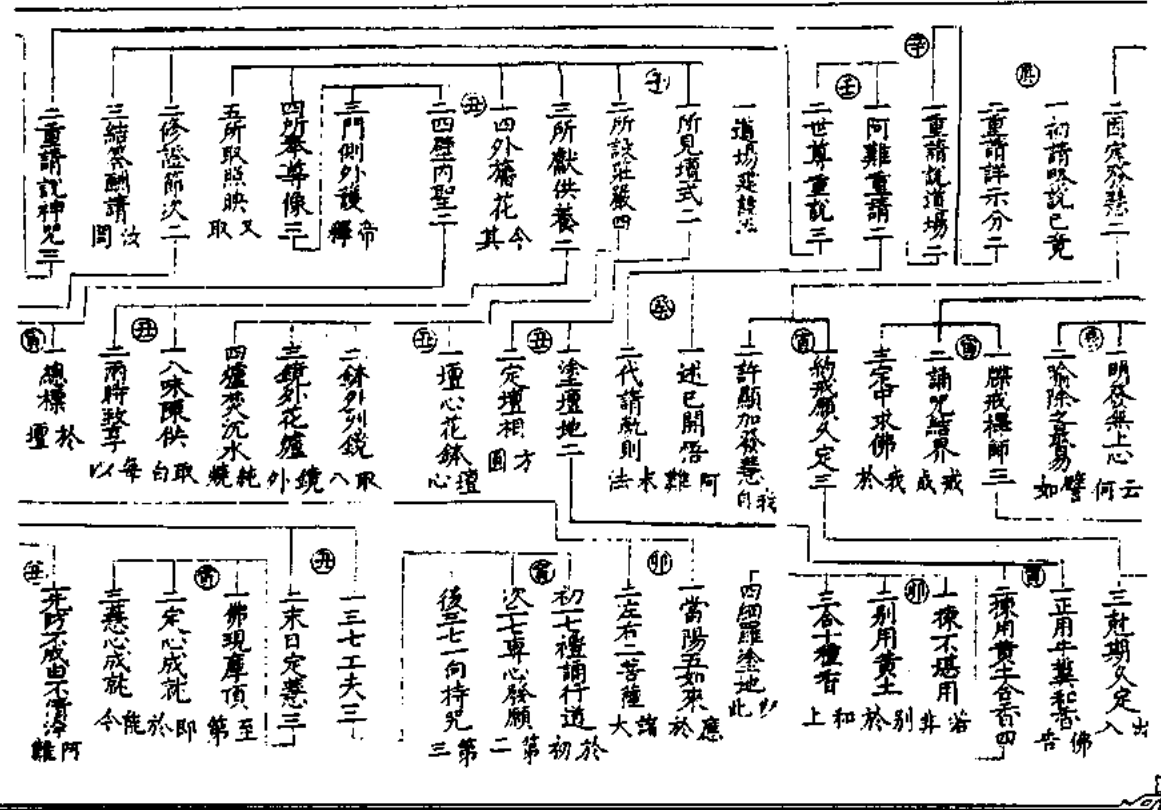 辛
庚
二因定發慧二
一初請略說已竟
二重請詳示分二
一重請說道場二
壬
一阿難重請二
二世尊重說三
一道場建設
一所見壇式二
二所設莊嚴四
三所獻供養二
丑
一四外旛花 今其
二四壁内聖二
三門側外護 帝釋
四所奉尊像三
五所取照映 又取
二修證節次二
三結答酬請 汝問
二重請說神咒三
一明發無上心 云何
二喻除之最易 譬如
寅
一牒戒標師三
二誦咒結界 戒成
三定中求佛 我於
寅
一約戒願久定三
二許顯加發慧 我自
癸
一述已開悟 阿難
二代請軌則 求法
丑
一塗壇地二
二定壇相 方圓
丑
一壇心花鉢 壇心
二鉢外列鏡 取八
三鏡外花爐 鏡外
四爐焚沉水 純燒
丑
一八味陳供 取白
二兩時致享 每以
寅
一總標 於壇
三尅期久定 出入
寅
一正用牛糞和香 佛告
二揀用黃土合香四
卯
一揀不堪用 若非
二別用黃土 別於
三合十種香 和上
四細羅塗地 此
卯
一當陽五如來 應於
二左右二菩薩 諸大
寅
初一七禮誦行道 於初
次二七專心發願 第二
後三七一向持咒 第三
丑
一三七工夫三
二末日定慧三
寅
一佛現摩頂 至第
二定心成就 即於
三慧心成就 能令
一先防不成由不清淨 阿難